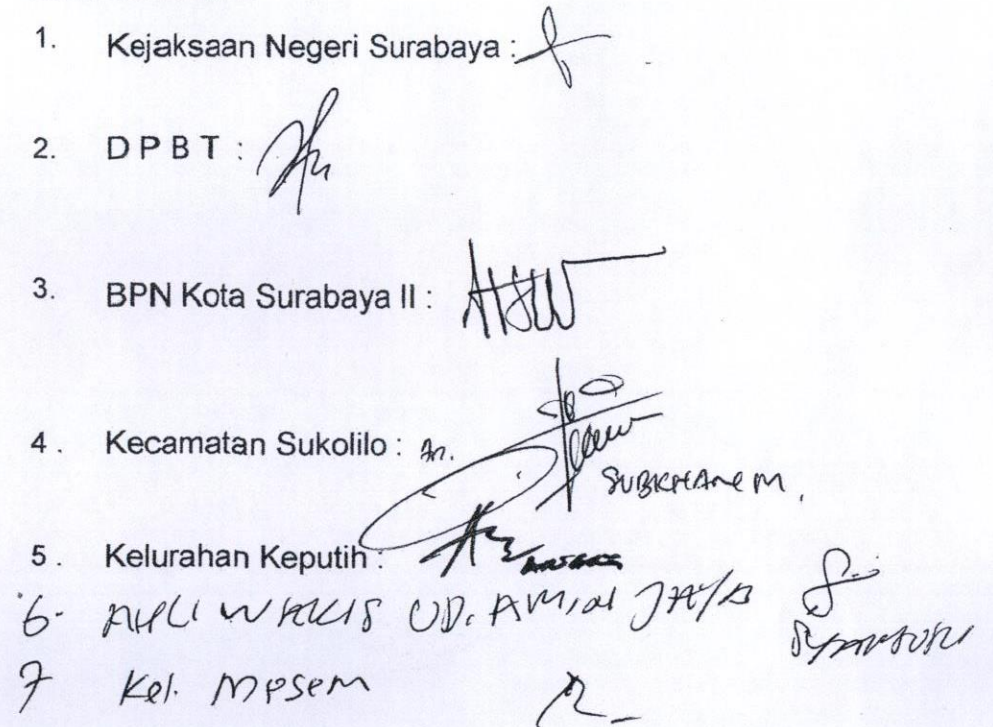 1. Kejaksaan Negeri Surabaya :
2. D P B T :
3. BPN Kota Surabaya II :
4 . Kecamatan Sukolilo : An.
SUBKHAN M.
5 . Kelurahan Keputih :
6. AHLI WARIS UD. AMIN JAYA
7 Kel. Mpsem